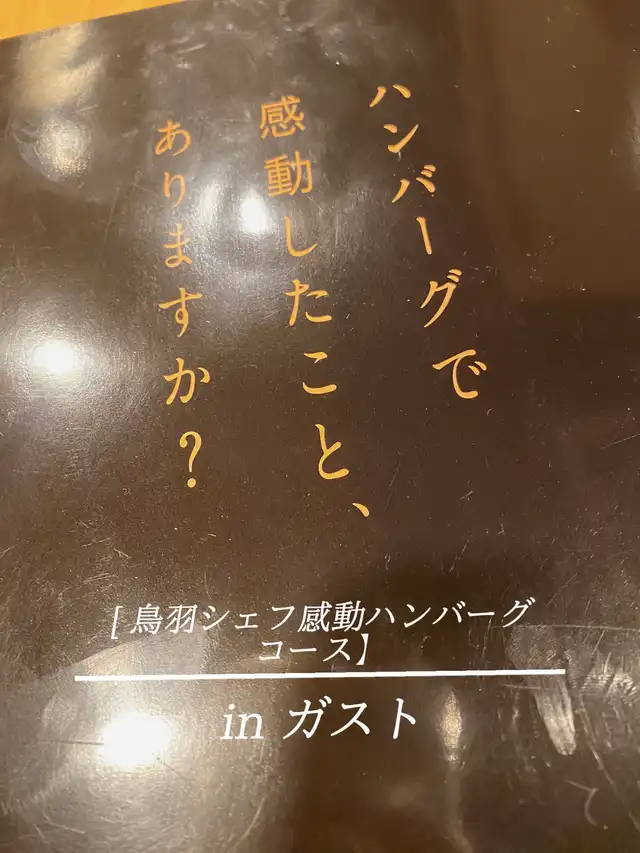 ハンバーグで
感動したこと、
ありますか?
[ 鳥羽シェフ感動ハンバーグ
コース】
in ガスト